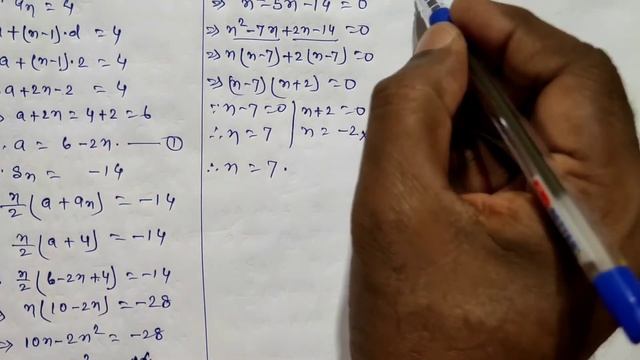 an = 4
a+(n-1)·d = 4
a+(n-1)·2 = 4
a+2n-2 = 4
a+2n = 4+2 = 6
∴ a = 6-2n. —— ①
Sn = -14
n/2 (a+an) = -14
n/2 (a+4) = -14
n/2 (6-2n+4) = -14
n(10-2n) = -28
⇒ 10n-2n² = -28
⇒ n²-5n-14=0
⇒ n²-7n+2n-14=0
⇒ n(n-7)+2(n-7)=0
⇒ (n-7)(n+2)=0
∵ n-7=0 | n+2=0
∴ n=7 | n=-2×
∴ n=7.